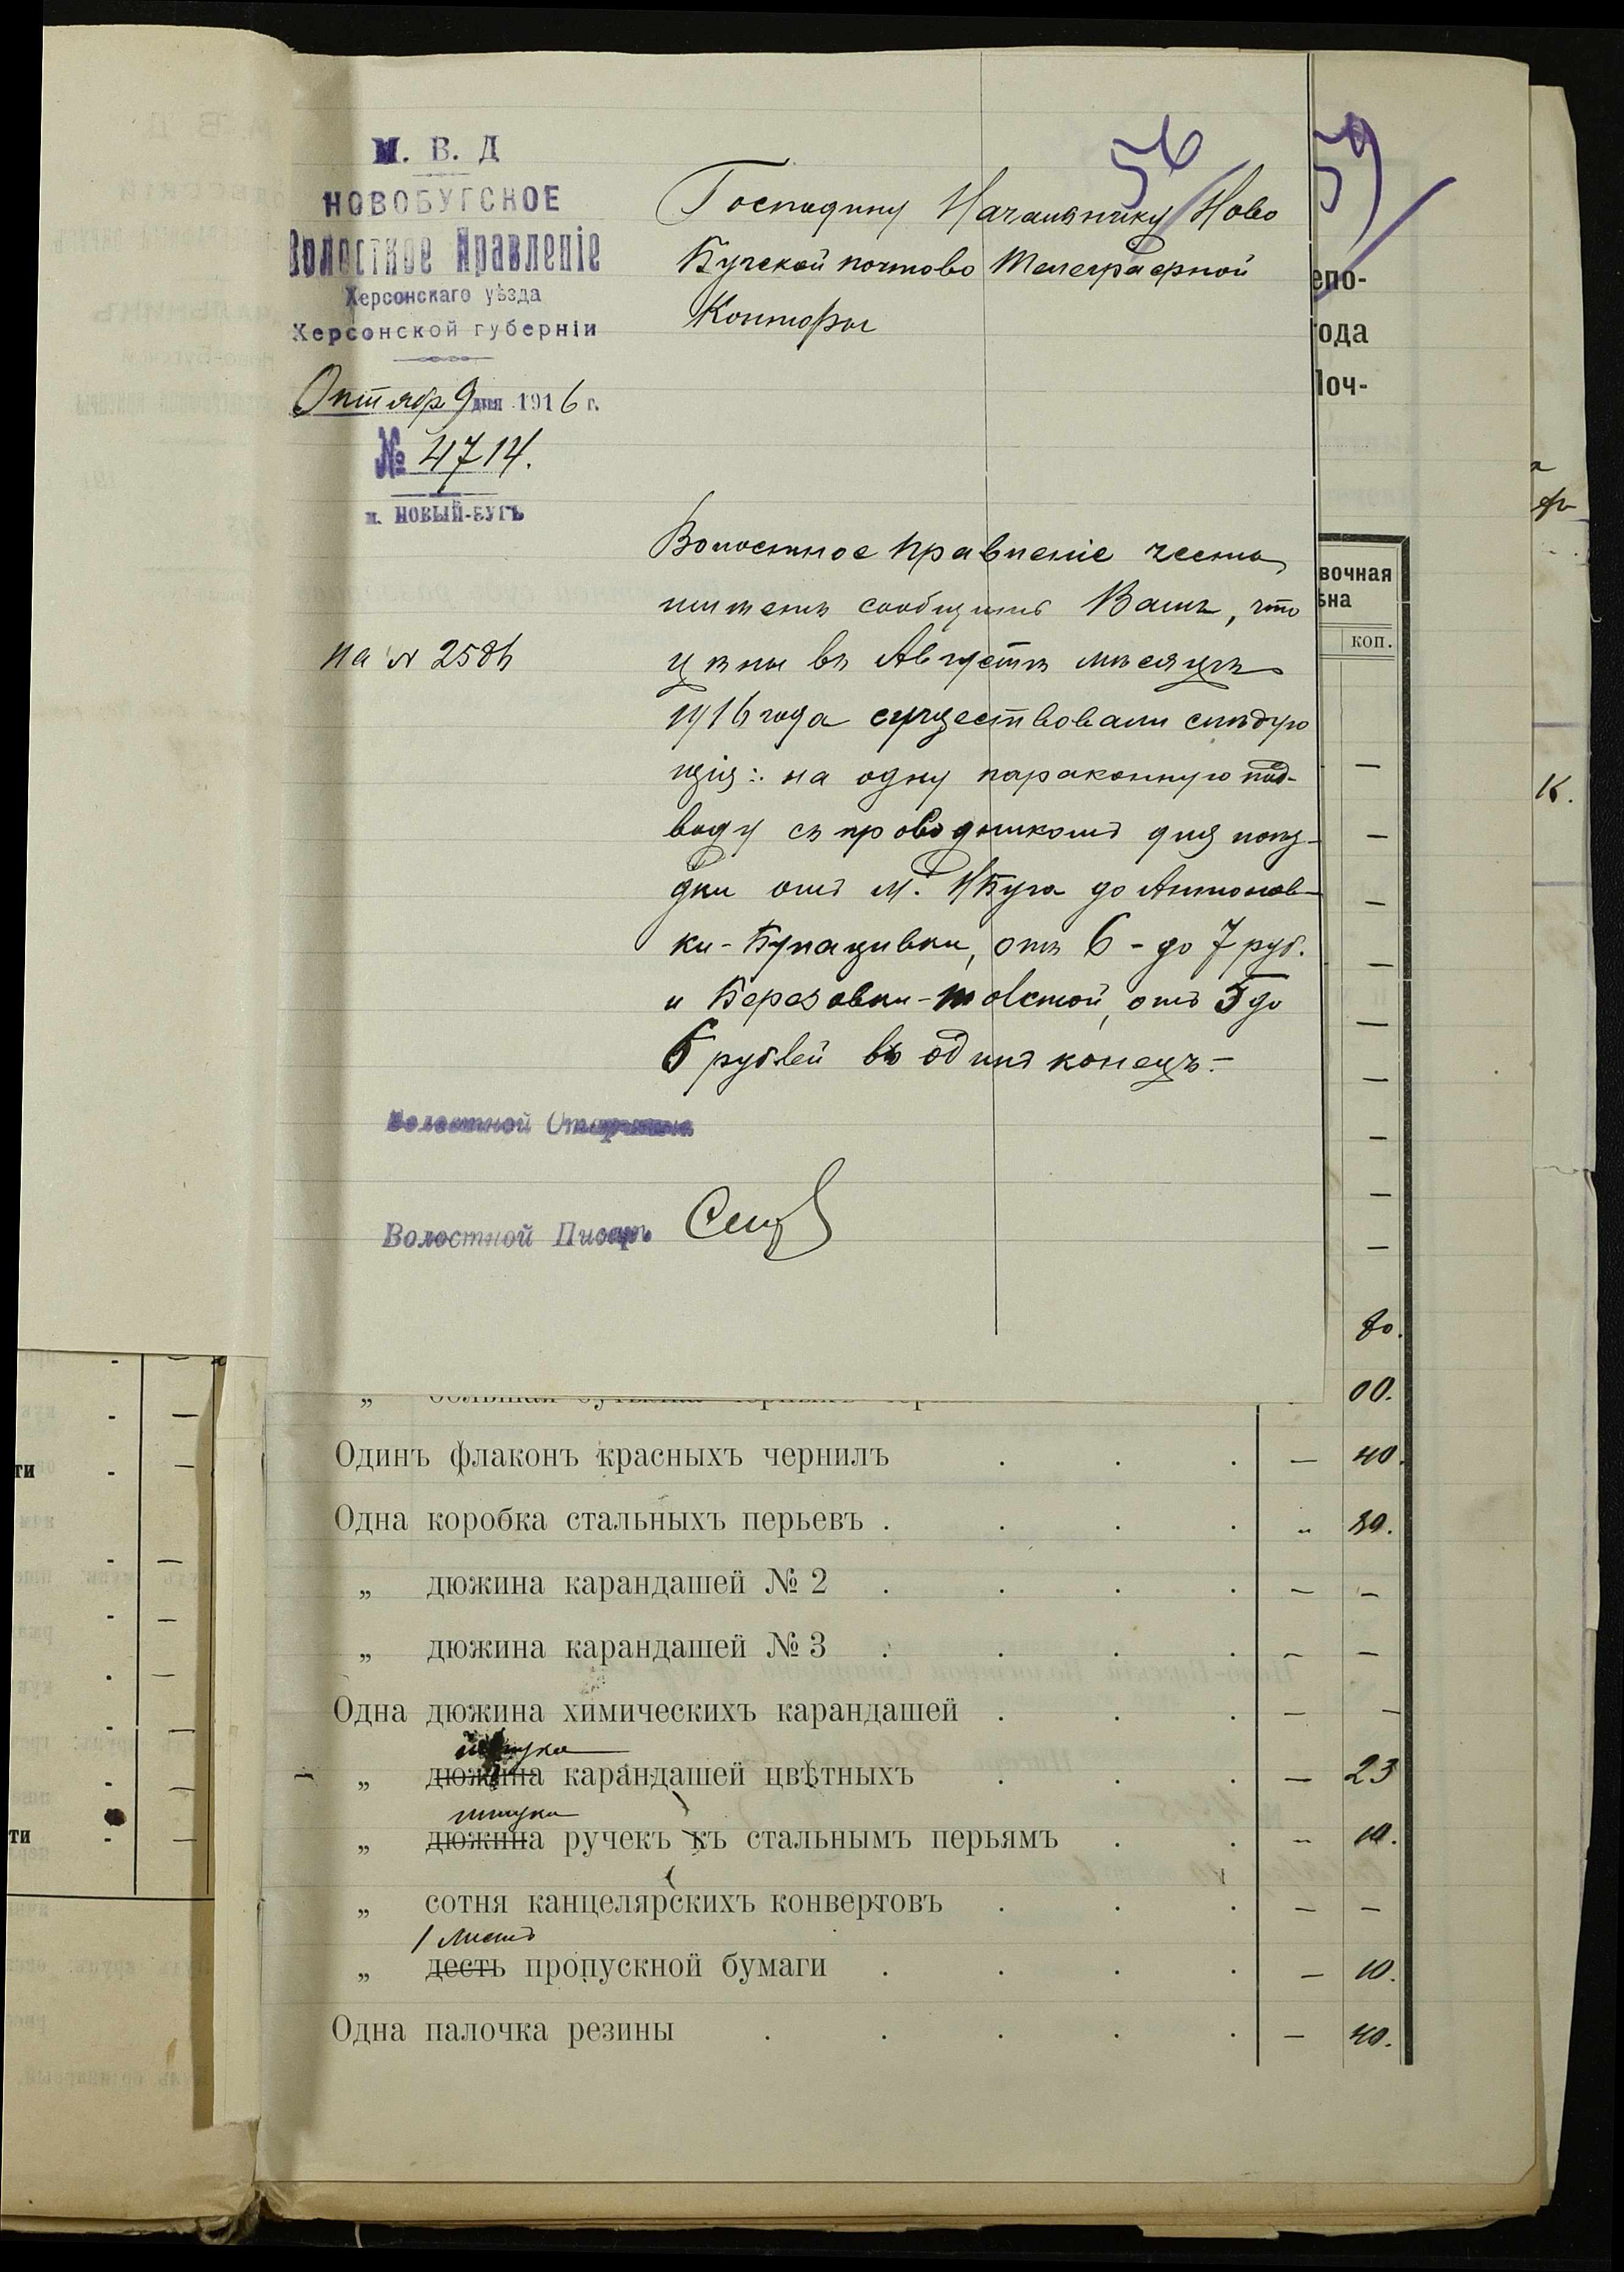 М. В. Д
НОВОБУГСКОЕ
Волостное Правленіе
Херсонскаго уѣзда
Херсонской губерніи
Октябр 9 дня 1916 г.
№ 4714.
м. НОВЫЙ-БУГЪ
на № 2586
56
59
Господину Начальнику Ново
Бугской почтово Телеграфной
Конторы
Волостное Правленіе честь
имѣетъ сообщить Вамъ, что
цѣны въ Августѣ мѣсяцѣ
1916 года существовали слѣдую
щія: на одну параконную под-
воду съ проводникомъ для поѣз-
дки отъ м. Н Буга до Антонов-
ки-Бугацивки, отъ 6 - до 7 руб.
и Березовки-товстой, отъ 5 до
6 рублей въ одинъ конецъ.-
Волостной Старшина
Волостной Писарь
епо-
года
Поч-
вочная
ѣна
коп.
К.
80.
00.
„ большая бутылка черныхъ черн
Одинъ флаконъ красныхъ чернилъ . . . — 40.
Одна коробка стальныхъ перьевъ . . . . „ 80.
„ дюжина карандашей № 2 . . . . — —
„ дюжина карандашей № 3 . . . . — —
Одна дюжина химическихъ карандашей . . . — —
штука
„ дюжина карандашей цвѣтныхъ . . . — 23
штука
„ дюжина ручекъ къ стальнымъ перьямъ . . — 10.
„ сотня канцелярскихъ конвертовъ . . . — —
1 листъ
„ десть пропускной бумаги . . . . — 10.
Одна палочка резины . . . . . — 40.
ти
ти